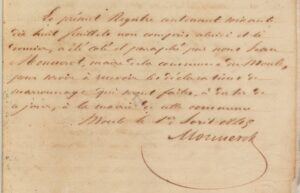 Le présent Registre contenant soixante
dix huit feuillets non compris celui ci et le
dernier, a été coté et paraphé par nous Jean
Mouverot, maire de la commune du Moule,
pour servir à recevoir les déclarations de
marronnage qui seront faites, à dater de
ce jour, à la mairie de cette commune
Moule le 1er Avril 1845